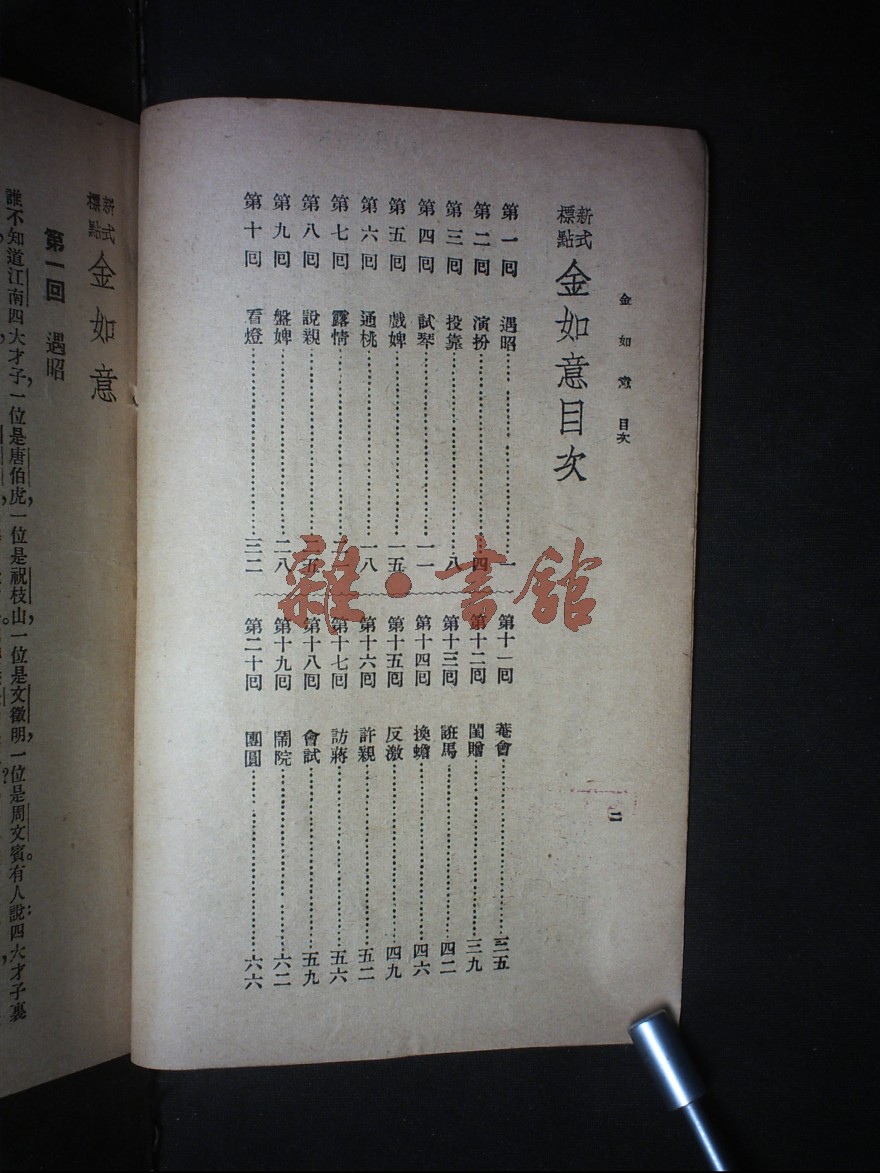 金如意 目次
二
新式標點 金如意目次
第一回 遇昭 一
第二回 演扮 四
第三回 投靠 八
第四回 試琴 一一
第五回 戲婢 一五
第六回 通桃 一八
第七回 露情
第八回 說親 二五
第九回 盤婢 二八
第十回 看燈 三二
第十一回 菴會 三五
第十二回 閨贈 三九
第十三回 誑馬 四二
第十四回 換蟾 四六
第十五回 反激 四九
第十六回 許親 五二
第十七回 訪蔣 五六
第十八回 會試 五九
第十九回 鬧院 六二
第二十回 團圓 六六
雜·書館
新式標點 金如意
第一回 遇昭
誰不知道江南四大才子,一位是唐伯虎,一位是祝枝山,一位是文徵明,一位是周文賓。有人說:四大才子裏